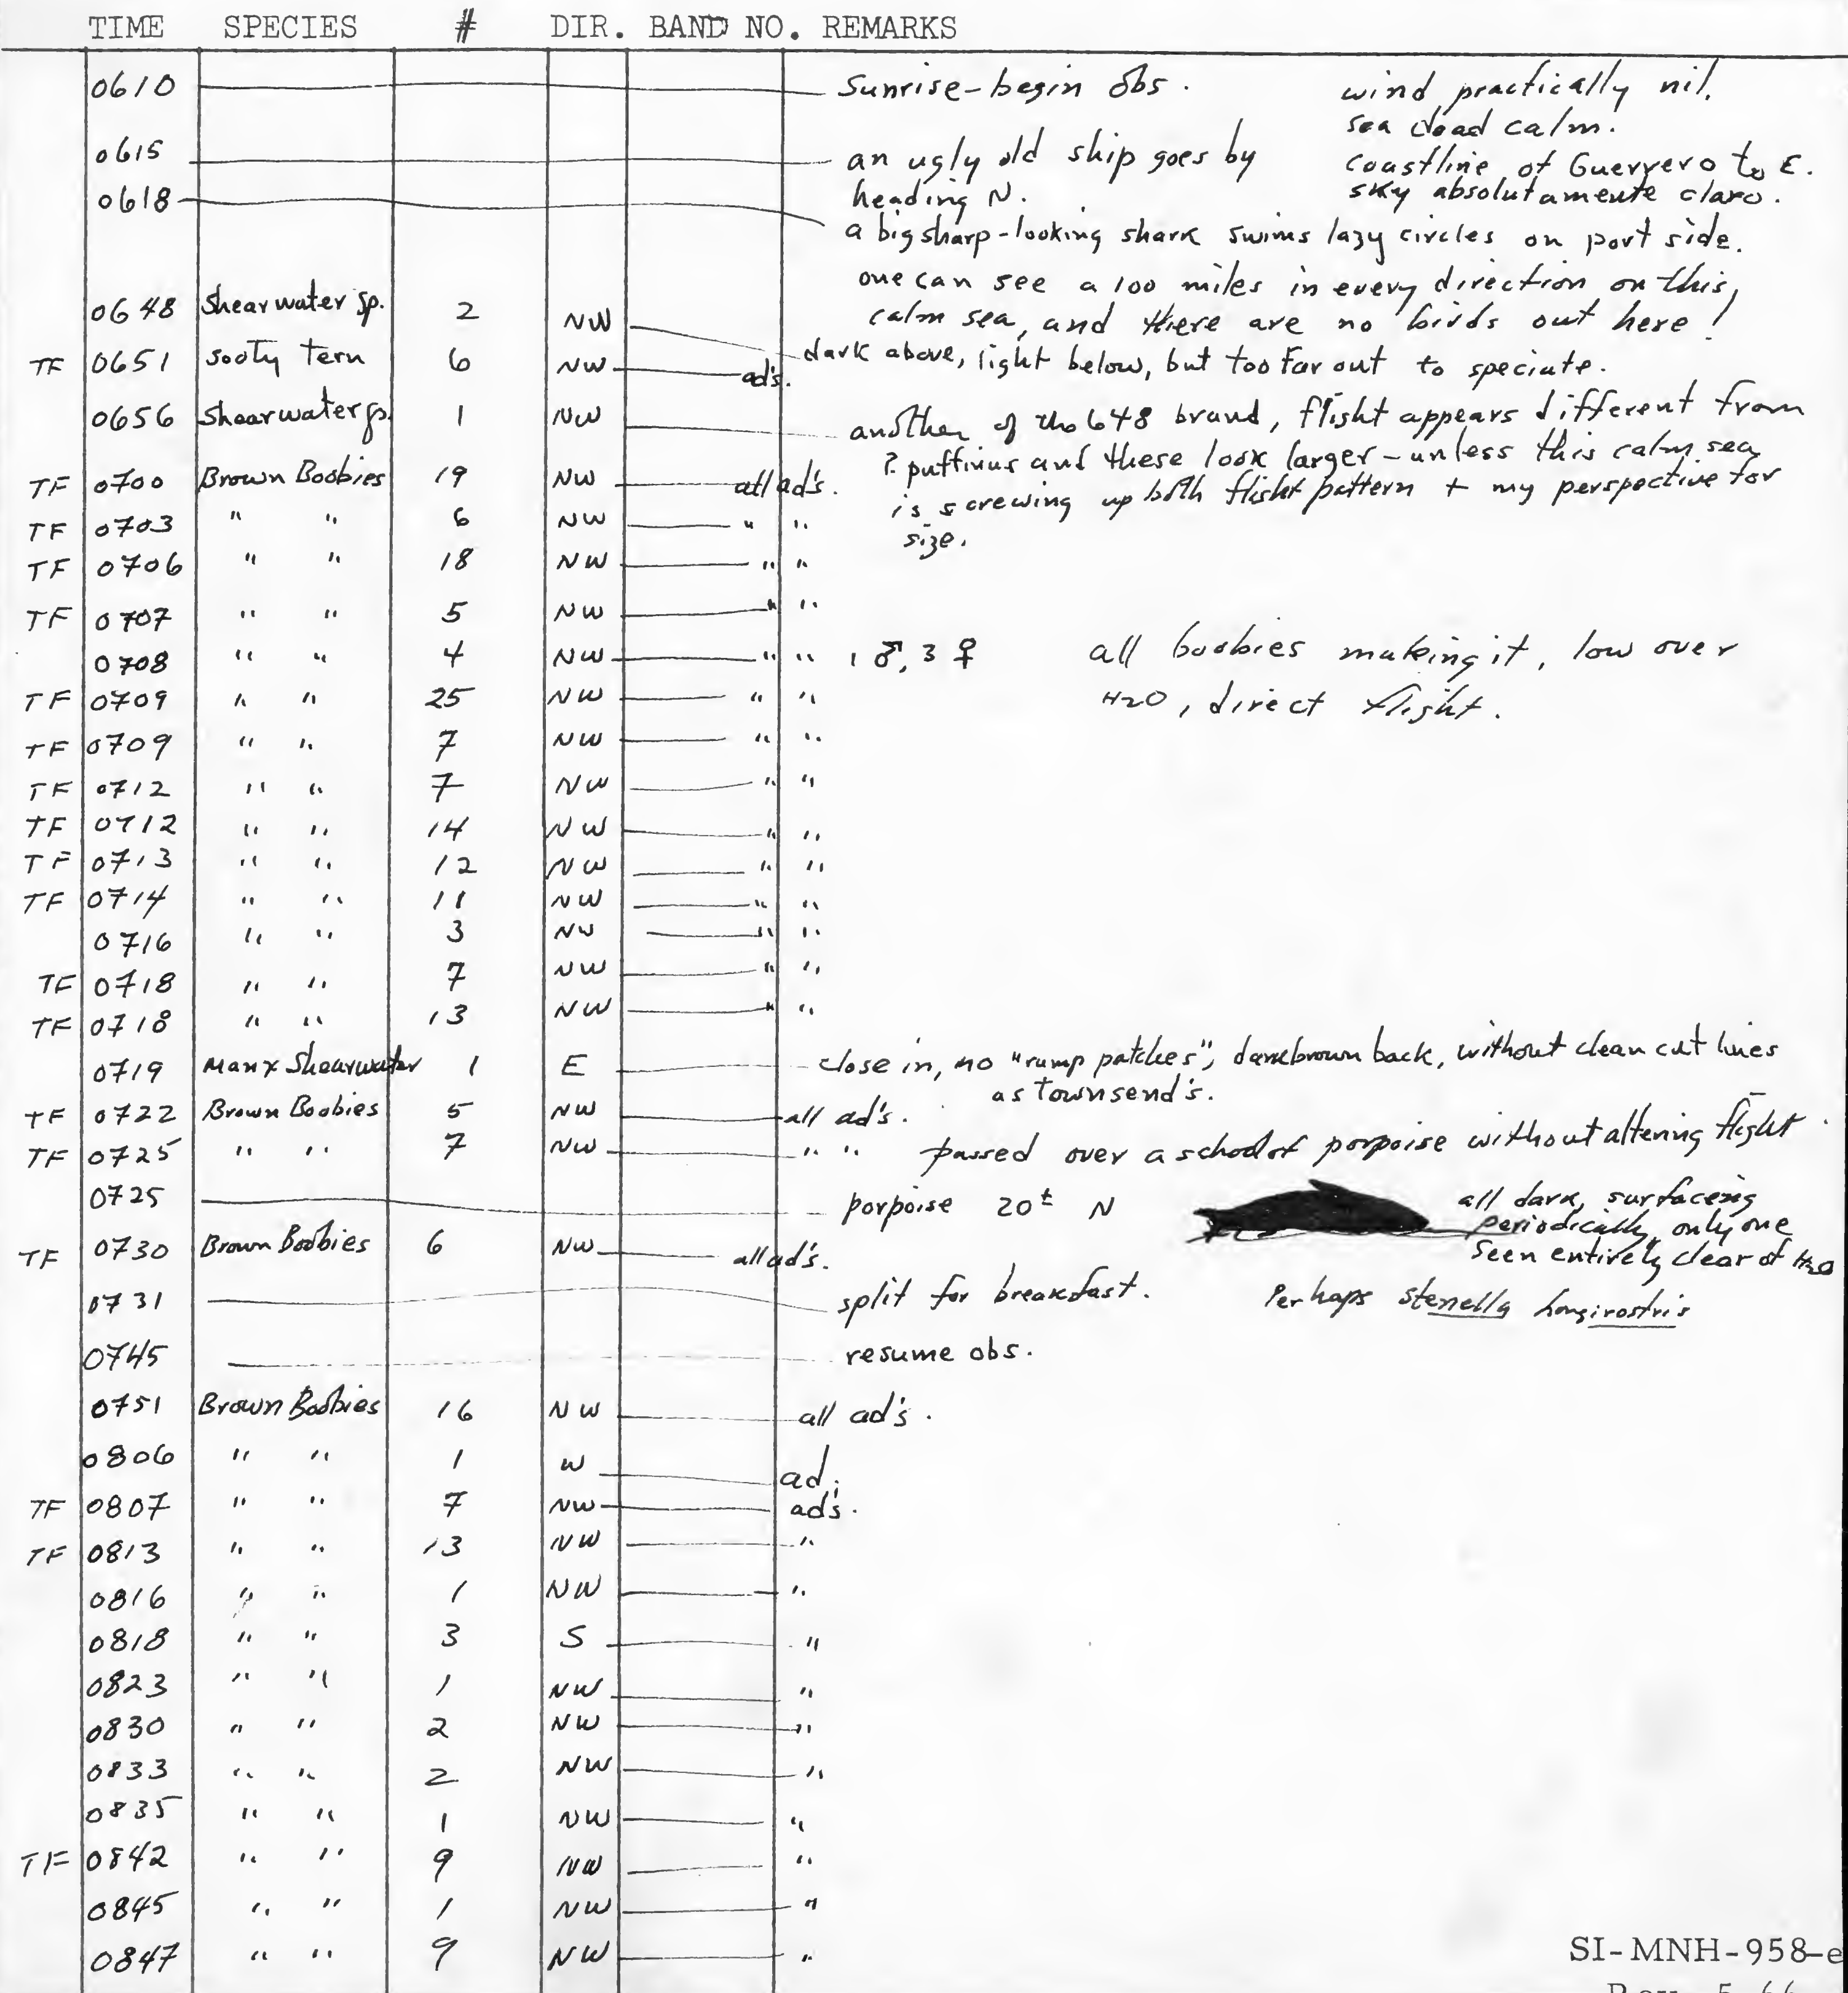 TIME SPECIES # DIR. BAND NO. REMARKS
0610 Sunrise-begin obs. wind practically nil,
sea dead calm.
0615 an ugly old ship goes by coastline of Guerrero to E.
heading N. sky absolutamente claro.
0618 a big sharp-looking shark swims lazy circles on port side.
one can see a 100 miles in every direction on this,
calm sea, and there are no birds out here!
0648 Shearwater sp. 2 NW dark above, light below, but too far out to speciate.
TF 0651 Sooty Tern 6 NW ad's.
0656 Shearwater sp. 1 NW another of the 648 brand, flight appears different from
P. puffinus and these look larger - unless this calm sea
is screwing up both flight pattern + my perspective for
size.
TF 0700 Brown Boobies 19 NW all ad's.
TF 0703 " " 6 NW " "
TF 0706 " " 18 NW " "
TF 0707 " " 5 NW " "
0708 " " 4 NW " " 1 ♂, 3 ♀ all boobies making it, low over
H2O, direct flight.
TF 0709 " " 25 NW " "
TF 0709 " " 7 NW " "
TF 0712 " " 7 NW " "
TF 0712 " " 14 NW " "
TF 0713 " " 12 NW " "
TF 0714 " " 11 NW " "
0716 " " 3 NW " "
TF 0718 " " 7 NW " "
TF 0718 " " 13 NW " "
0719 Manx Shearwater 1 E close in, no "rump patches", dark brown back, without clean cut lines
as Townsend's.
TF 0722 Brown Boobies 5 NW all ad's.
TF 0725 " " 7 NW " " passed over a school of porpoise without altering flight.
0725 porpoise 20± N all dark, surfaceing
periodically, only one
seen entirely clear of H2O
TF 0730 Brown Boobies 6 NW all ad's.
0731 split for breakfast. Perhaps stenella longirostris
0745 resume obs.
0751 Brown Boobies 16 NW all ad's.
0806 " " 1 W ad.
TF 0807 " " 7 NW ad's.
TF 0813 " " 13 NW "
0816 " " 1 NW "
0818 " " 3 S "
0823 " " 1 NW "
0830 " " 2 NW "
0833 " " 2 NW "
0835 " " 1 NW "
TF 0842 " " 9 NW "
0845 " " 1 NW "
0847 " " 9 NW "
SI-MNH-958-e